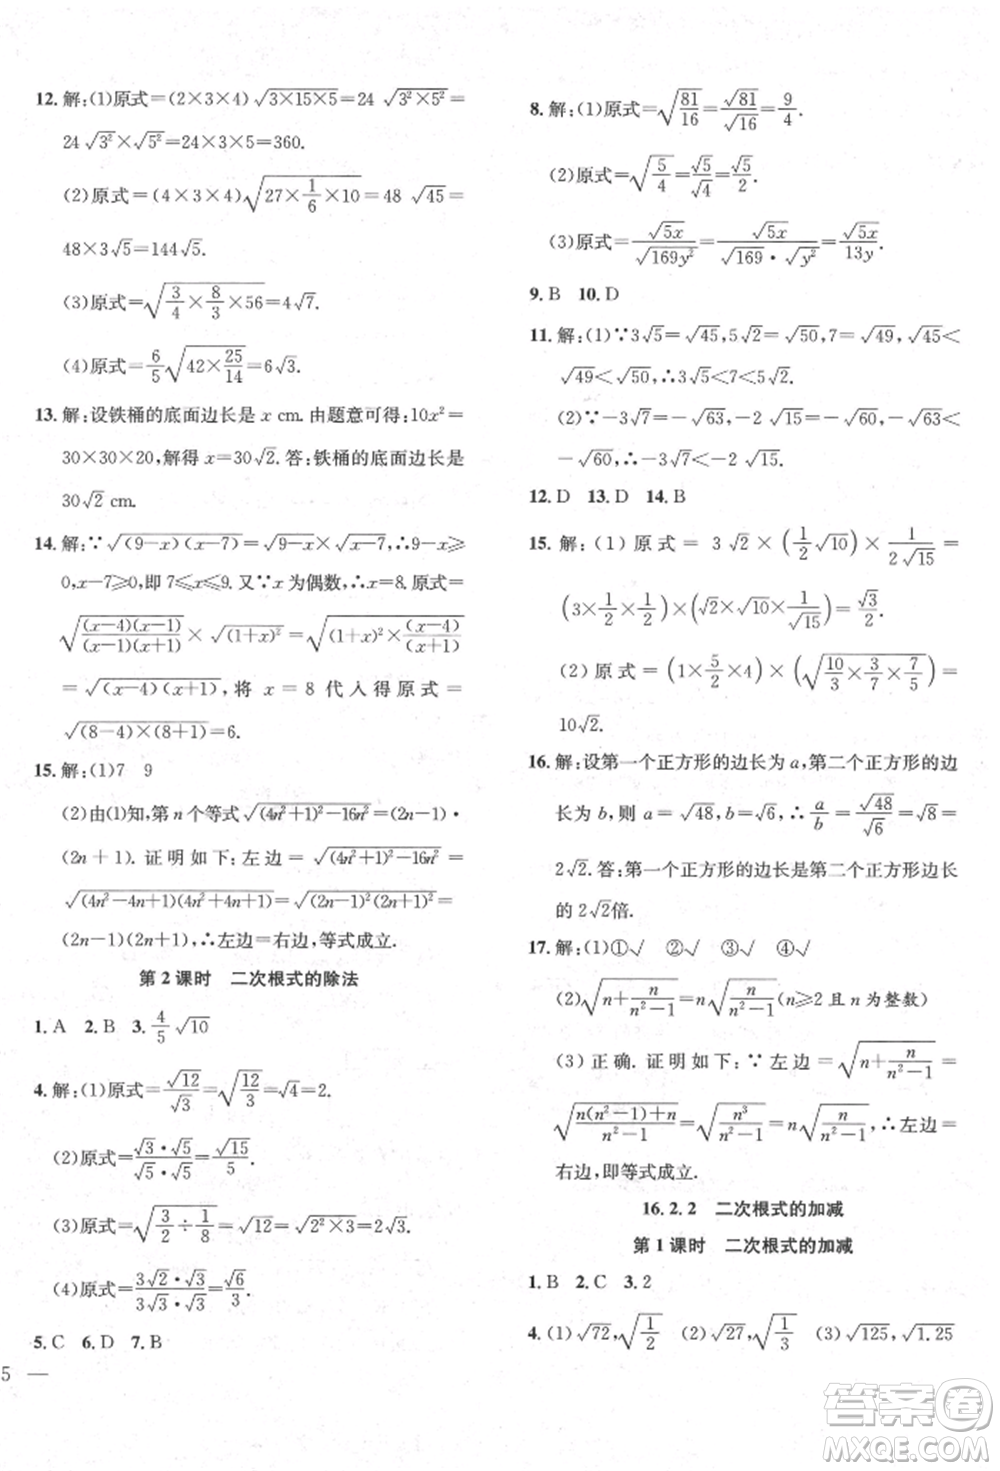 12. 解:(1)原式=(2×3×4)√(3×15×5)=24 √(3²×5²)=
24 √3²×√5²=24×3×5=360.
(2)原式=(4×3×4)√(27×1/6×10)=48 √45=
48×3√5=144√5.
(3)原式=√(3/4×8/3×56)=4√7.
(4)原式=6/5√(42×25/14)=6√3.
13. 解:设铁桶的底面边长是 x cm. 由题意可得:10x²=
30×30×20,解得 x=30√2. 答:铁桶的底面边长是
30√2 cm.
14. 解:∵√((9-x)(x-7))=√(9-x)×√(x-7),∴9-x≥
0,x-7≥0,即 7≤x≤9. 又∵x 为偶数,∴x=8. 原式=
√((x-4)(x-1)/(x-1)(x+1))×√((1+x)²)=√((1+x)²×(x-4)/(x+1))
=√((x-4)(x+1)),将 x=8 代入得原式=
√((8-4)×(8+1))=6.
15. 解:(1)7 9
(2)由(1)知,第 n 个等式√((4n²+1)²-16n²)=(2n-1)·
(2n+1). 证明如下:左边=√((4n²+1)²-16n²)=
√((4n²-4n+1)(4n²+4n+1))=√((2n-1)²(2n+1)²)=
(2n-1)(2n+1),∴左边=右边,等式成立.
第 2 课时 二次根式的除法
1. A 2. B 3. 4/5 √10
4. 解:(1)原式=√12/√3=√(12/3)=√4=2.
(2)原式=(√3·√5)/(√5·√5)=√15/5.
(3)原式=√(3/2÷1/8)=√12=√(2²×3)=2√3.
(4)原式=(3√2×√3)/(3√3·√3)=√6/3.
5. C 6. D 7. B
5 —
8. 解:(1)原式=√(81/16)=√81/√16=9/4.
(2)原式=√(5/4)=√5/√4=√5/2.
(3)原式=√5x/√(169y²)=√5x/(√169·√y²)=√5x/13y.
9. B 10. D
11. 解:(1)∵3√5=√45,5√2=√50,7=√49,√45<
√49<√50,∴3√5<7<5√2.
(2)∵-3√7=-√63,-2√15=-√60,-√63<
-√60,∴-3√7<-2√15.
12. D 13. D 14. B
15. 解:(1)原式=3√2×(1/2√10)×1/(2√15)=
(3×1/2×1/2)×(√2×√10×1/√15)=√3/2.
(2)原式=(1×5/2×4)×(√(10/3×3/7×7/5))=
10√2.
16. 解:设第一个正方形的边长为 a,第二个正方形的边
长为 b,则 a=√48,b=√6,∴a/b=√48/√6=√8=
2√2. 答:第一个正方形的边长是第二个正方形边长
的 2√2倍.
17. 解:(1)①√ ②√ ③√ ④√
(2)√(n+n/(n²-1))=n√(n/(n²-1))(n≥2 且 n 为整数)
(3)正确. 证明如下:∵左边=√(n+n/(n²-1))=
√((n(n²-1)+n)/(n²-1))=√(n³/(n²-1))=n√(n/(n²-1)),∴左边=
右边,即等式成立.
16.2.2 二次根式的加减
第 1 课时 二次根式的加减
1. B 2. C 3. 2
4. (1)√72,√(1/2) (2)√27,√(1/3) (3)√125,√1.25
答案卷
MXQE.COM